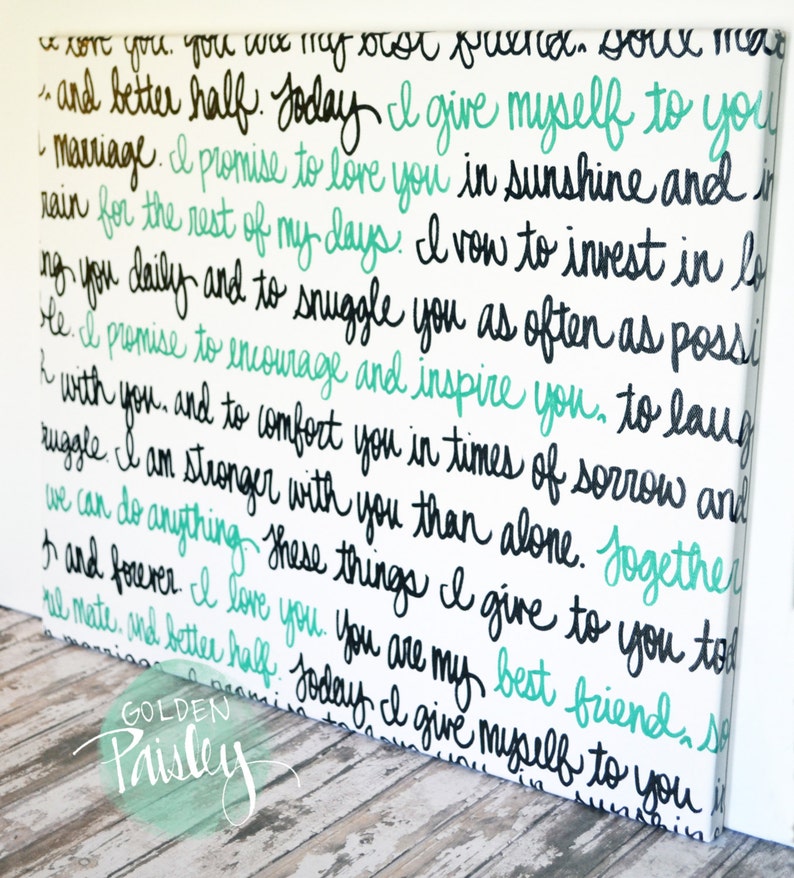 I love you. you are my best friend, soul mat
and better half. Today I give myself to you
marriage. I promise to love you in sunshine and in
rain for the rest of my days. I vow to invest in lo
ng you daily and to snuggle you as often as possi
ble. I promise to encourage and inspire you, to laug
h with you, and to comfort you in times of sorrow and
ruggle. I am stronger with you than alone. Together
we can do anything. These things I give to you tod
and forever. I love you. You are my best friend, so
ul mate, and better half. Today I give myself to you i
n marriage. I promise to love you in sunshin
GOLDEN
Paisley